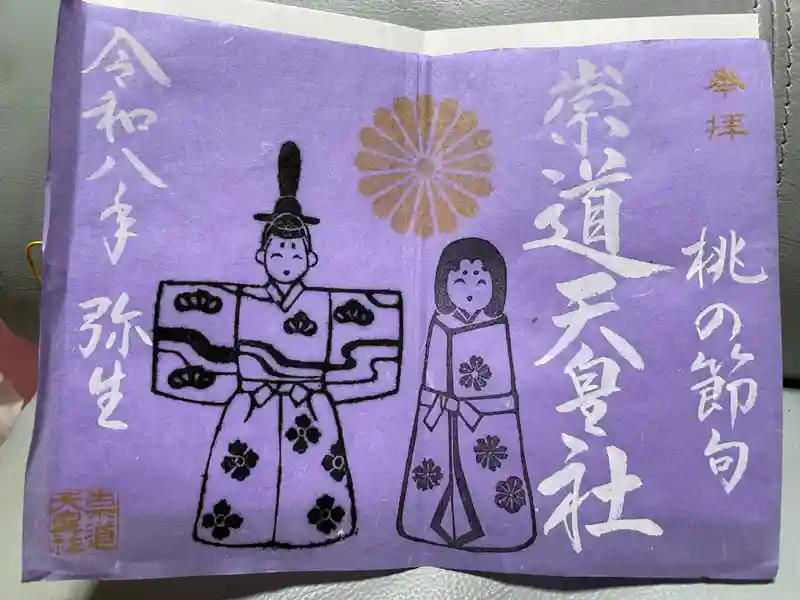 奉拝
桃の節句
崇道天皇社
令和八年
弥生
崇道
天皇社